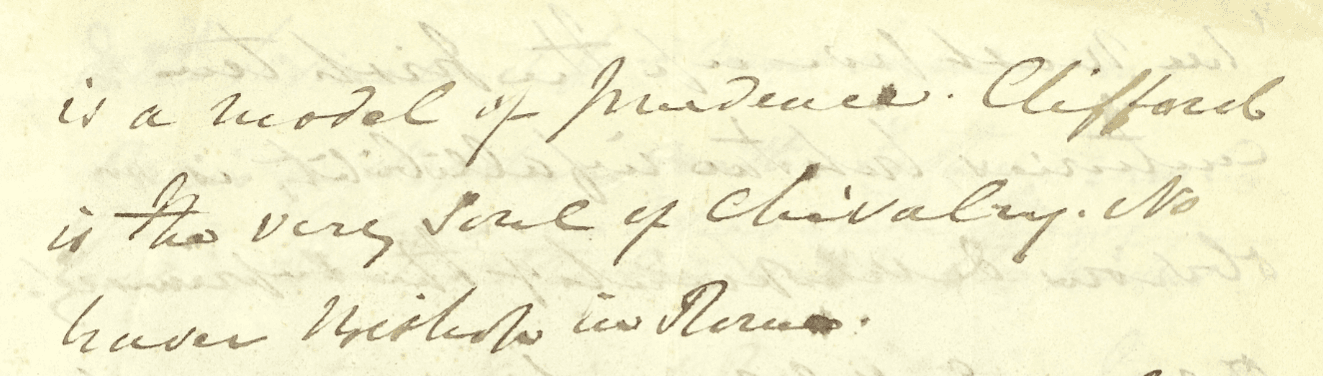 is a model of prudence. Clifford
is the very soul of chivalry. No
braver Bishop in Rome.